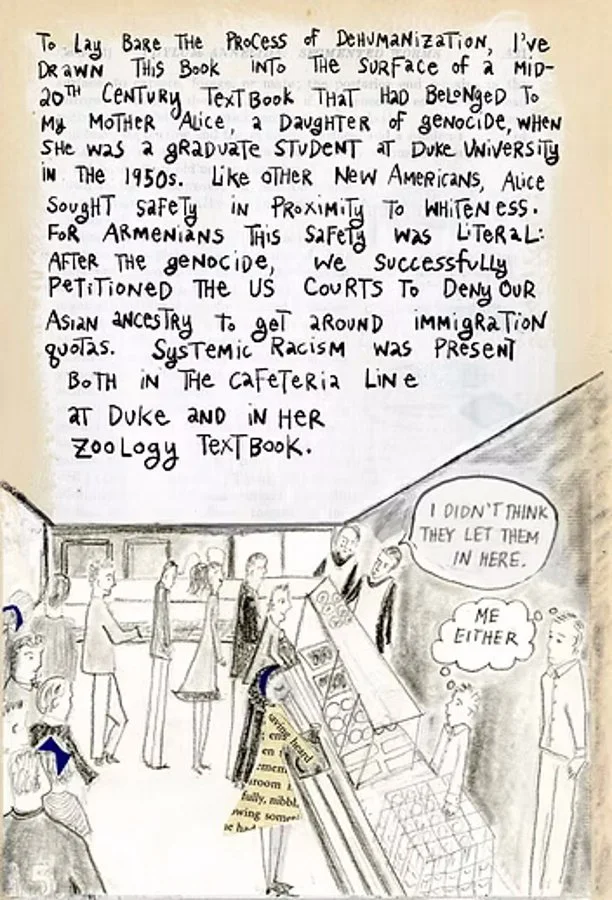 To Lay Bare The Process of Dehumanization, I've
Drawn This Book Into The Surface of a Mid-
20th Century Textbook That Had Belonged To
My Mother Alice, a Daughter of genocide, when
She was a graduate student at Duke University
in The 1950s. Like other New Americans, Alice
Sought safety in Proximity to whiteness.
For Armenians this safety was literal:
After the genocide, we successfully
Petitioned The US Courts To Deny our
Asian ancestry to get around immigration
quotas. Systemic Racism was Present
Both in the cafeteria Line
at Duke and in Her
Zoology Textbook.
I DIDN'T THINK
THEY LET THEM
IN HERE.
ME
EITHER
aving heard
en
room
fully, nibbl
owing some
he had
15